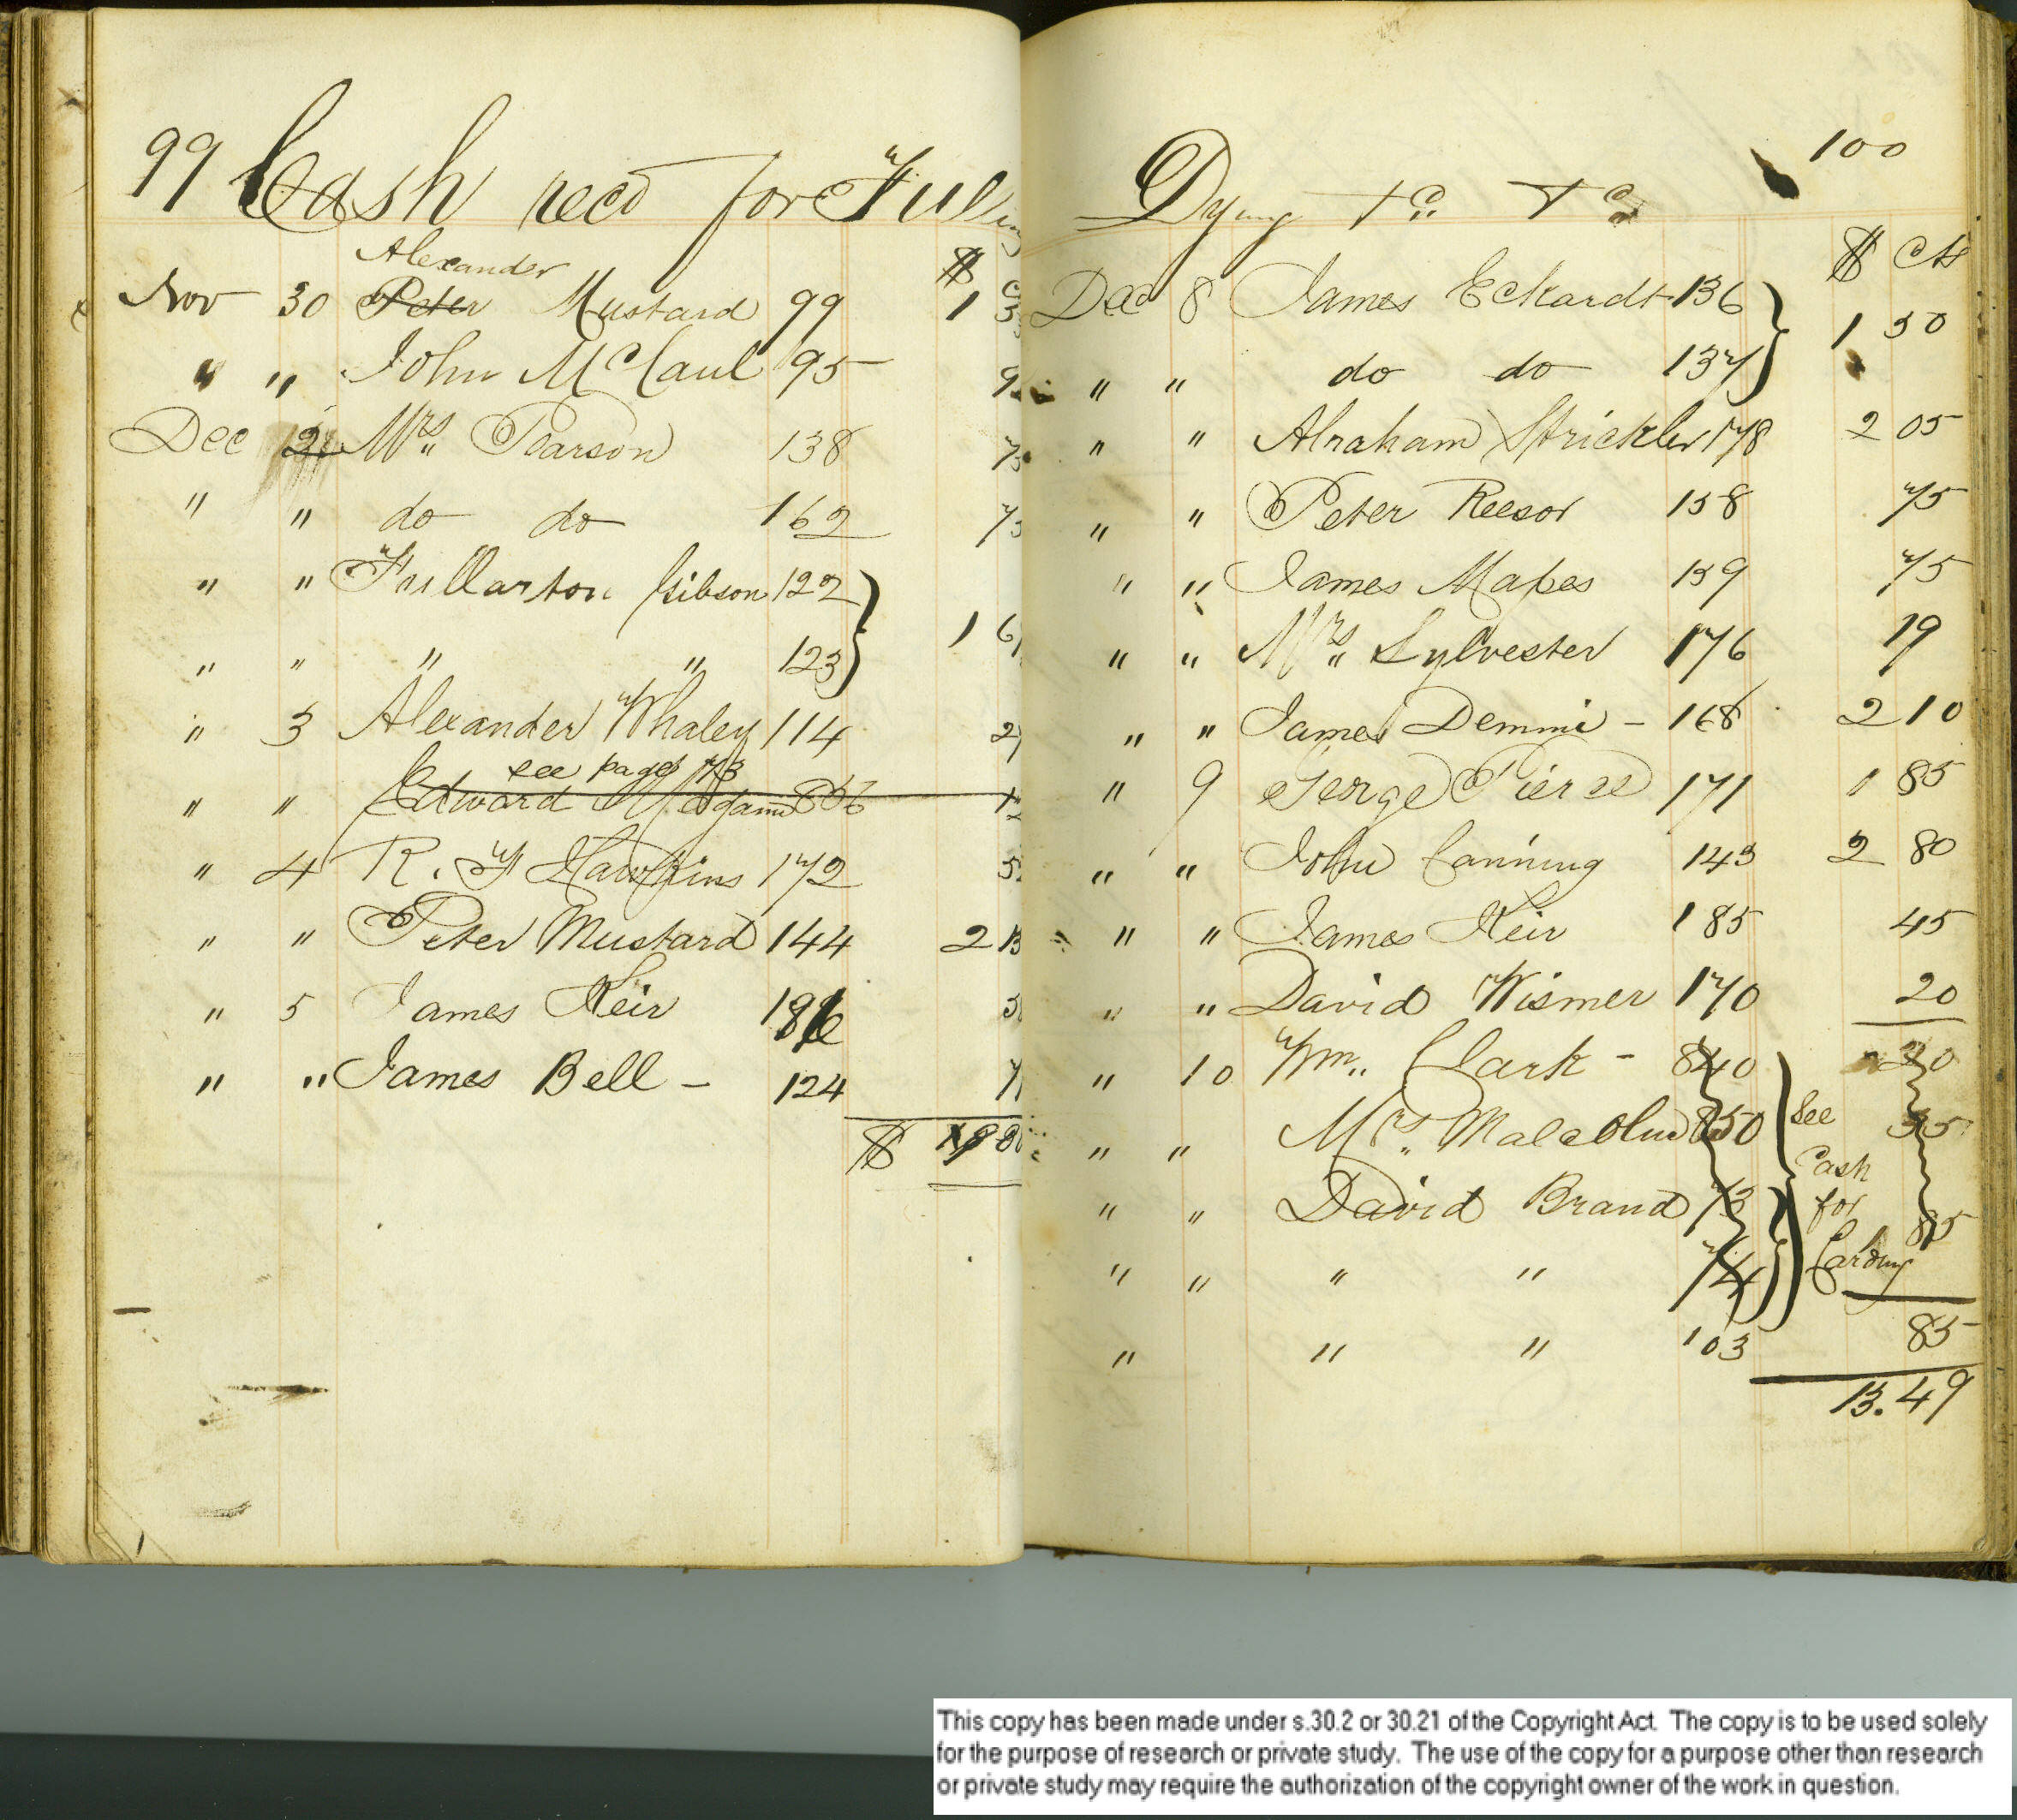 99 Cash recd for Fulling
$ c
Alexander
Nov 30 Peter Mustard 99 1
" " John McCaul 95 9
Dec 2 Mrs Pearson 138 75
" " do do 162 75
" " Fullarton Gibson 122
" " " " 123 1 6
" 3 Alexander Whaley 114 2
see page 73
" " Edward 1
" 4 R. Y Hawkins 172 5
" " Peter Mustard 144 2 13
" 5 James Keir 186
" " James Bell - 124 7
$
Dying &c &c 100
$ Cts
Dec 8 James Eckardt 136
1 50
" " do do 137
" " Abraham Strickler 178 2 05
" " Peter Reesor 158 75
" " James Mapes 159 75
" " Mrs Sylvester 176 19
" " James Demmi - 168 2 10
" 9 George Pierse 171 1 85
" " John Canning 143 2 80
" " James Keir 185 45
" " David Wismer 170 20
" 10 Wm Clark - 840 20
" " Mrs Malcolm 850 See 35
Cash
" " David Brand 73 for 85
" " " " 74 Carding
" " " 103 85
13.49
This copy has been made under s.30.2 or 30.21 of the Copyright Act. The copy is to be used solely
for the purpose of research or private study. The use of the copy for a purpose other than research
or private study may require the authorization of the copyright owner of the work in question.